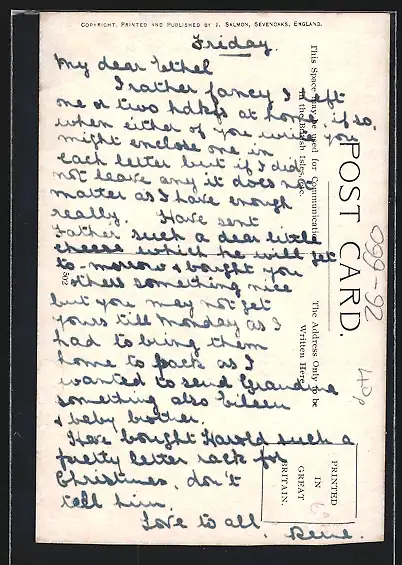 COPYRIGHT. PRINTED AND PUBLISHED BY J. SALMON, SEVENOAKS, ENGLAND.
Friday.
My dear Ethel
I rather fancy I left
one or two hdkfs at home, if so
when either of you write you
might enclose one in
each letter but if I did
not leave any it does not
matter as I have enough
really. Have sent
Father such a dear little
cheese which he will get
to-morrow & bought you
others something nice
but you may not get
yours till Monday as I
had to bring them
home to pack as I
wanted to send Grandma
something also Eileen
& baby brother.
Have bought Harold such a
pretty letter rack for
Christmas, don't
tell him.
Love to all.
This Space may be used for Communication
in the British Isles, etc.
The Address Only to be
Written Here
POST CARD.
PRINTED
IN
GREAT
BRITAIN.
099-92
40p